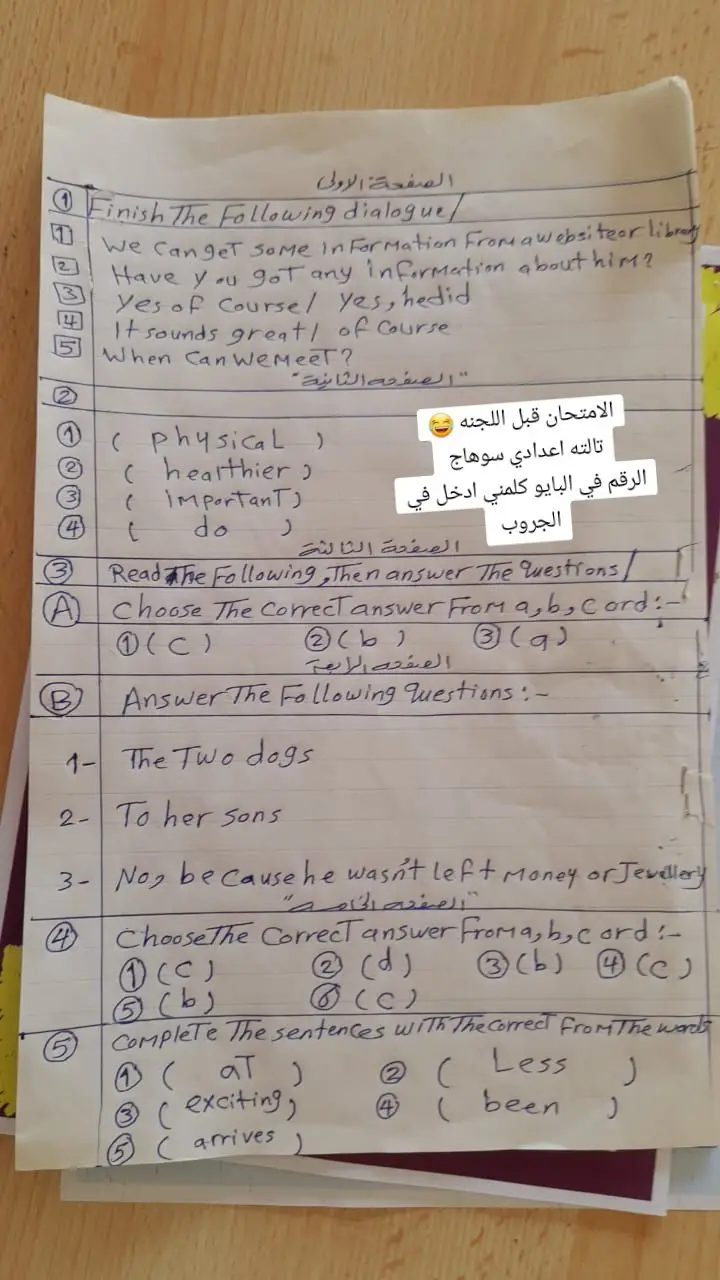 الصفحة الاولى
① Finish The Following dialogue/
1 We can get some information From a website or library
2 Have you got any information about him?
3 Yes of course/ Yes, he did
4 It sounds great/ of course
5 When can we meet?
"الصفحه الثانية"
②
① ( physical )
② ( healthier )
③ ( important )
④ ( do )
الامتحان قبل اللجنه 😂
تالته اعدادي سوهاج
الرقم في البايو كلمني ادخل في
الجروب
الصفحة الثالثة
③ Read The Following, Then answer The questions/
Ⓐ Choose The correct answer From a, b, c or d :-
① ( c ) ② ( b ) ③ ( a )
الصفحه الرابعة
Ⓑ Answer The Following questions :-
1- The Two dogs
2- To her sons
3- No, because he wasn't left money or Jewellery
"الصفحه الخامسة"
④ Choose The correct answer From a, b, c or d :-
① ( c ) ② ( d ) ③ ( b ) ④ ( c )
⑤ ( b ) ⑥ ( c )
⑤ Complete The sentences with The correct From The words
① ( at ) ② ( Less )
③ ( exciting ) ④ ( been )
⑤ ( arrives )